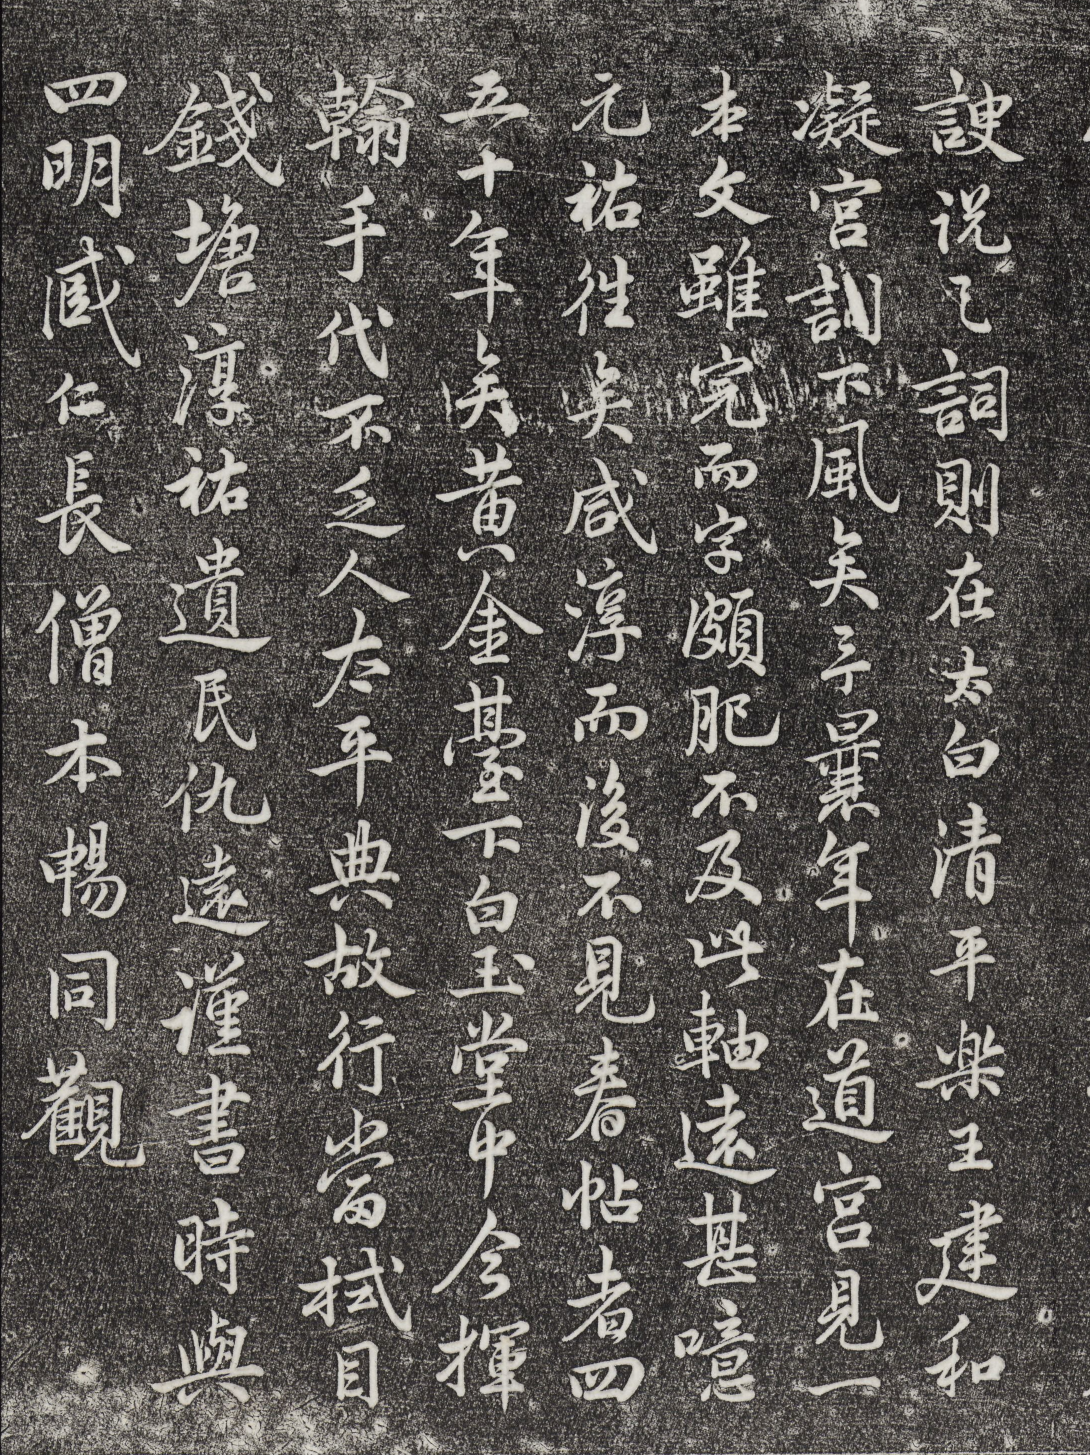 諛說已詞則在太白清平樂王建和
凝宮訓下風矣予曩年在道宮見一
本文雖完而字頗肥不及此軸遠甚噫
元祐往矣咸淳而後不見春帖者四
五十年矣黃金臺下白玉堂中今揮
翰手代不乏人太平典故行當拭目
錢塘淳祐遺民仇遠謹書時與
四明臧仁長僧本暢同觀